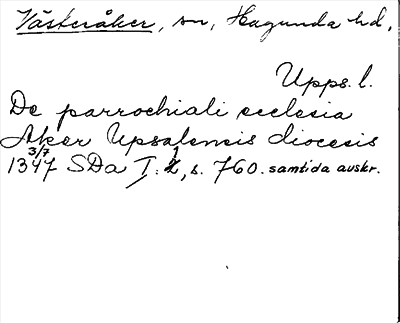 Västeråker, sn, Hagunda hd,
Upps. l.
De parrochiali ecclesia
Aker Upsalensis diocesis
3/7
1347 SDa I:1, s. 760. samtida avskr.